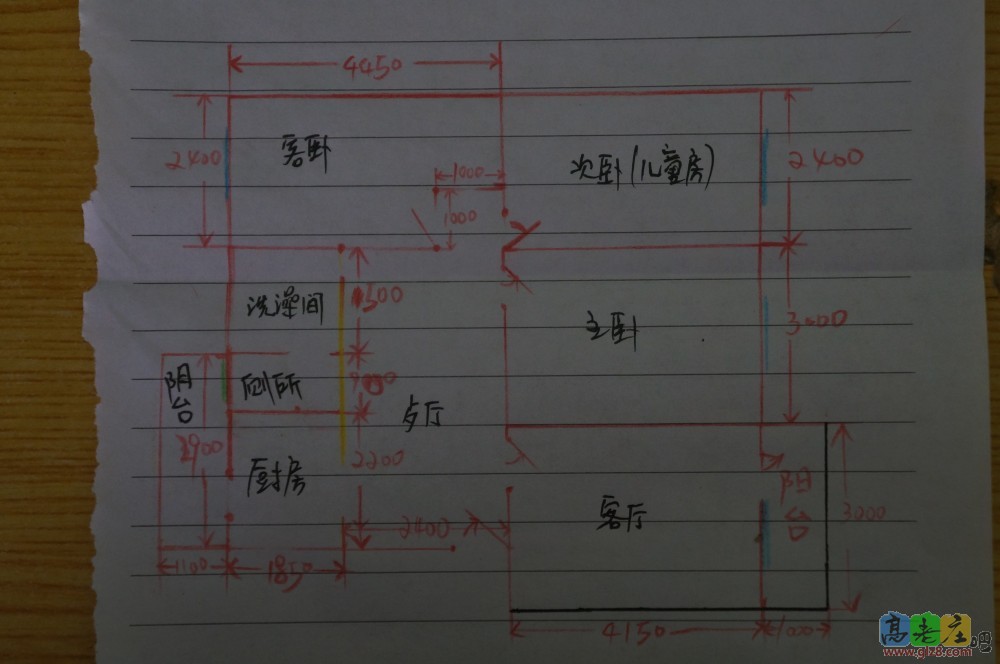 4450
2400
客卧
1000
1000
次卧(儿童房)
2400
洗澡间
主卧
3000
阴台
厕所
歺厅
2900
厨房
2200
2400
客厅
阳台
3000
1100
1850
4150
1000
高老庄吧
www.glz8.com